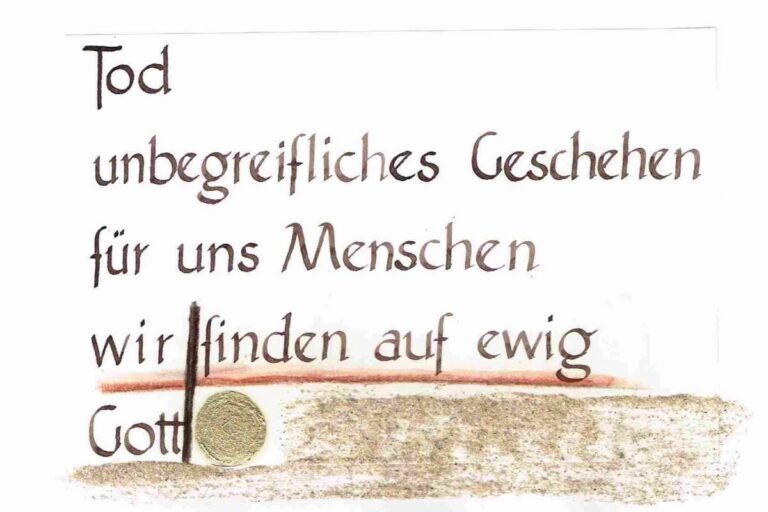 Tod
unbegreifliches Geschehen
für uns Menschen
wir finden auf ewig
Gott